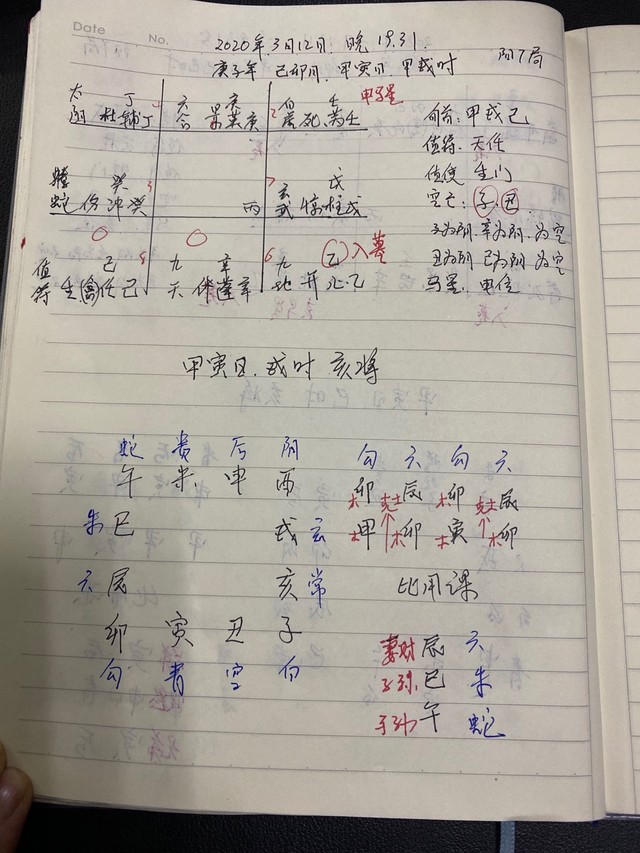 Date No.
2020年.3月12日.晚 19:31. 阴7局
庚子年 己卯月.甲寅日.甲戌时
太 丁 六 庚 白 壬 甲马星
阴 杜辅丁 合 景英庚 虎死.芮壬
旬首:甲戌己
值符:天任
值使 生门
空亡:子.丑
螣 癸 玄 戊
蛇 伤冲癸 丙 武 惊柱戊
子为阴.辛为阴.为空
值 己 九 辛 九 乙 入墓
丑为阴 己为阴 为空
符 生禽任己 天 休蓬辛 地 开心乙
马星:申位
甲寅日.戌时 亥将
蛇 贵 后 阴 勾 六 勾 六
午 未 申 酉 卯 辰 卯 辰
木 克土 木 克土
朱 巳 戌 玄 木甲 木卯 木寅 木卯
六 辰 亥 常 比用课
卯 寅 丑 子
勾 青 空 白
妻财 辰 六
子孙 巳 朱
子孙 午 蛇